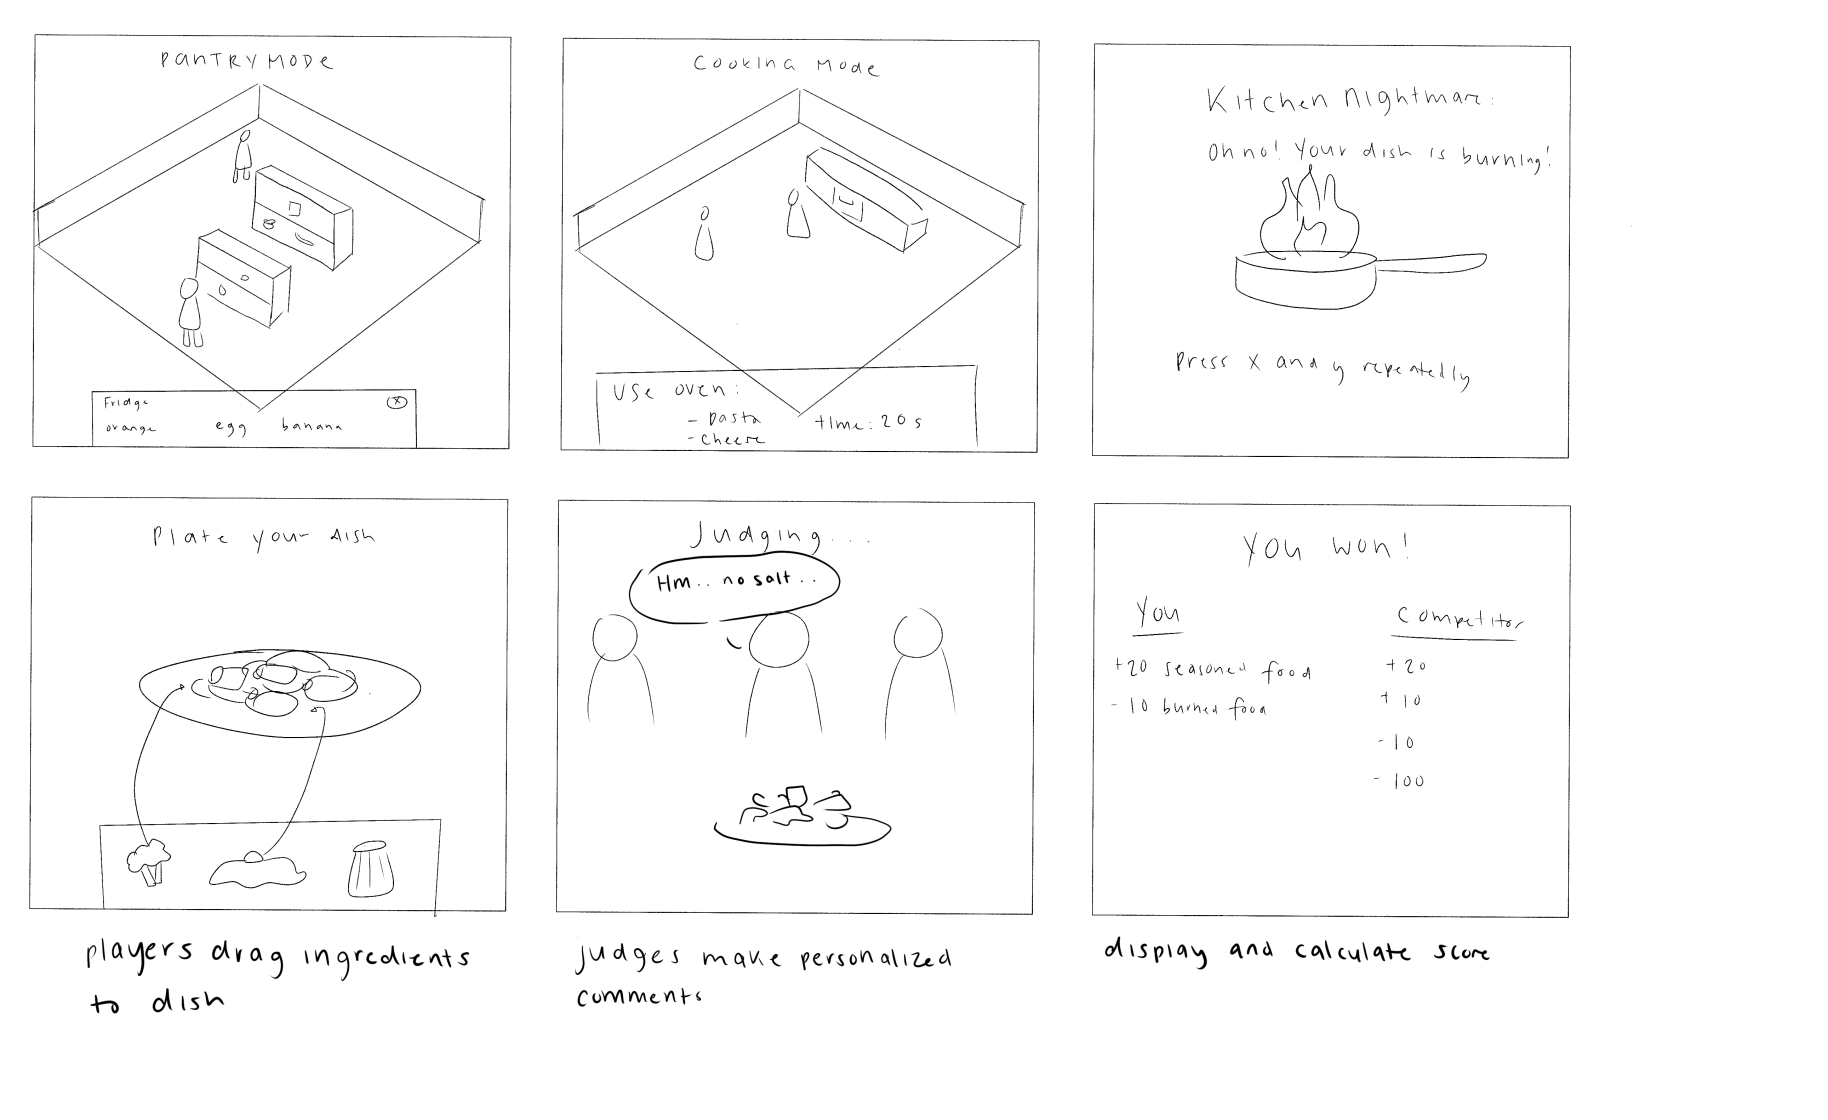 PANTRY MODE
Fridge
X
orange egg banana
COOKING MODE
USE OVEN:
- pasta time: 20s
- cheese
Kitchen Nightmare:
Oh no! Your dish is burning!
Press X and y repeatedly
Plate your dish
players drag ingredients
to dish
Judging...
Hm.. no salt..
judges make personalized
comments
YOU WON!
You
+20 seasoned food
-10 burned food
Competitor
+20
+10
-10
-100
display and calculate score